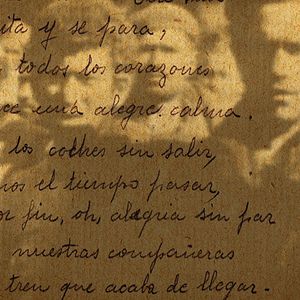 ita y se para,
todos los corazones
una alegre calma.
los coches sin salir,
mos el tiempo pasar,
or fin, oh, alegria sin par
nuestras compañeras
tren que acaba de llegar-